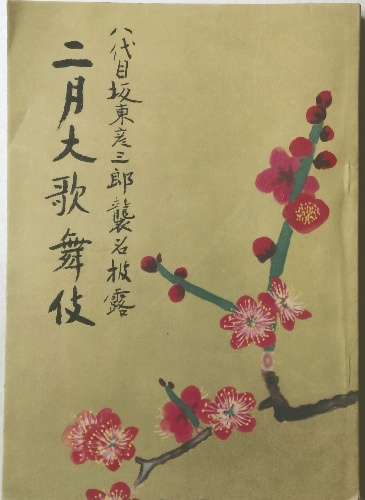 八代目坂東彦三郎襲名披露
二月大歌舞伎